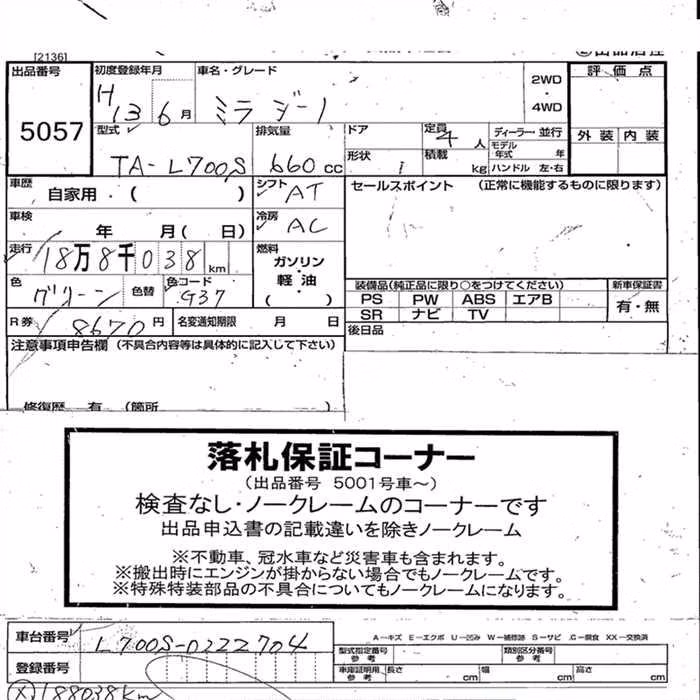 [2136]
出品番号 5057
初度登録年月 H13 6月
車名・グレード ミラ ジーノ
2WD・4WD
評価点
外装 内装
型式 TA-L700S
排気量 660cc
ドア
形状
定員 4人
積載 kg
ディーラー・並行
モデル年式 年
ハンドル 左・右
車歴 自家用・( )
シフト AT
セールスポイント (正常に機能するものに限ります)
車検 年 月( 日)
冷房 AC
走行 18万8千038km
燃料 ガソリン・軽油 ( )
色 グリーン
色替
色コード G37
装備品(純正品に限り○をつけてください)
新車保証書 有・無
PS PW ABS エアB
SR ナビ TV
R券 8670円
名変通知期限 月 日
後日品
注意事項申告欄 (不具合内容等は具体的に記入して下さい)
修復歴 有 (箇所 )
落札保証コーナー
(出品番号 5001号車〜)
検査なし・ノークレームのコーナーです
出品申込書の記載違いを除きノークレーム
※不動車、冠水車など災害車も含まれます。
※搬出時にエンジンが掛からない場合でもノークレームです。
※特殊特装部品の不具合についてもノークレームになります。
車台番号 L700S-0222704
A-キズ E-エクボ U-凹み W-補修跡 S-サビ G-腐食 XX-交換済
型式指定番号 参考
類別区分番号 参考
登録番号
車庫証明用 参考 長さ cm 幅 cm 高さ cm
(X)188038km